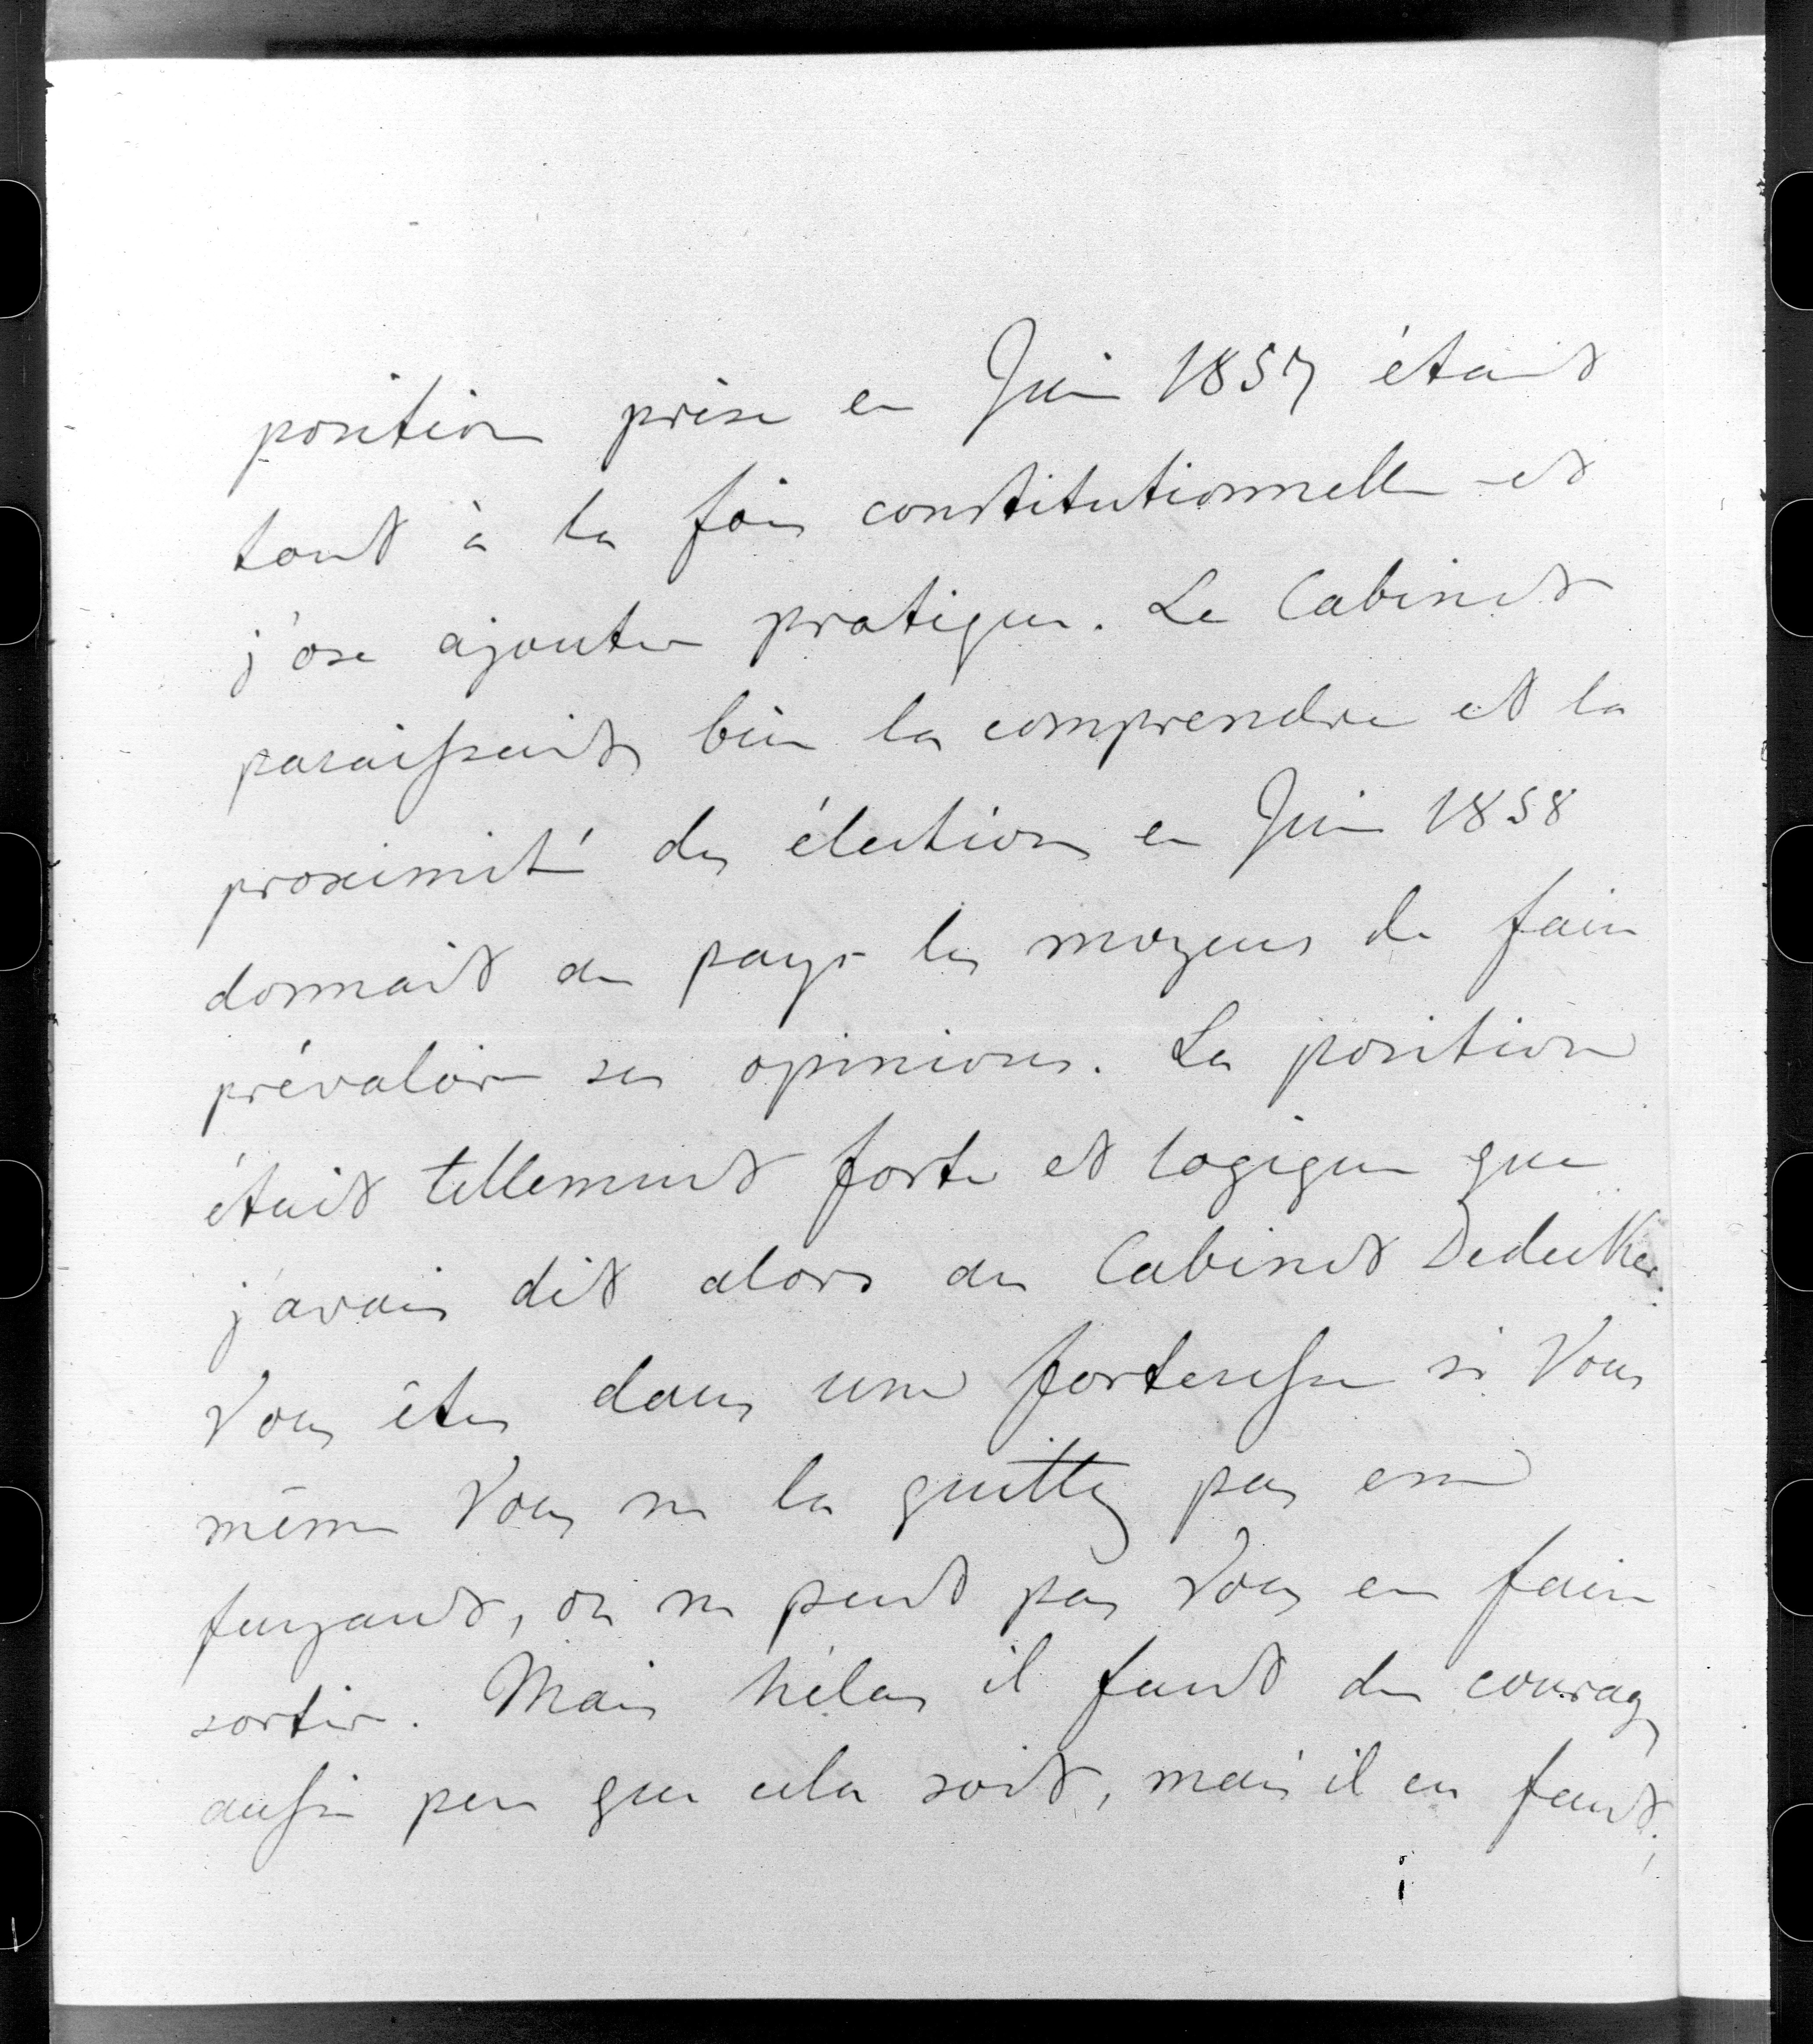 position prise en Juin 1857 était
tout à la fois constitutionnelle et
j'ose ajouter pratique. Le Cabinet
paraissait bien la comprendre et la
proximité des élections en Juin 1858
donnait au pays les moyens de faire
prévaloir ses opinions. La position
était tellement forte et logique que
j'avais dit alors au Cabinet Dedecker
Vous êtes dans une forteresse si Vous
même Vous ne la quittez pas en
fuyant, on ne peut pas Vous en faire
sortir. Mais hélas il faut du courage
aussi peu que cela soit, mais il en faut;